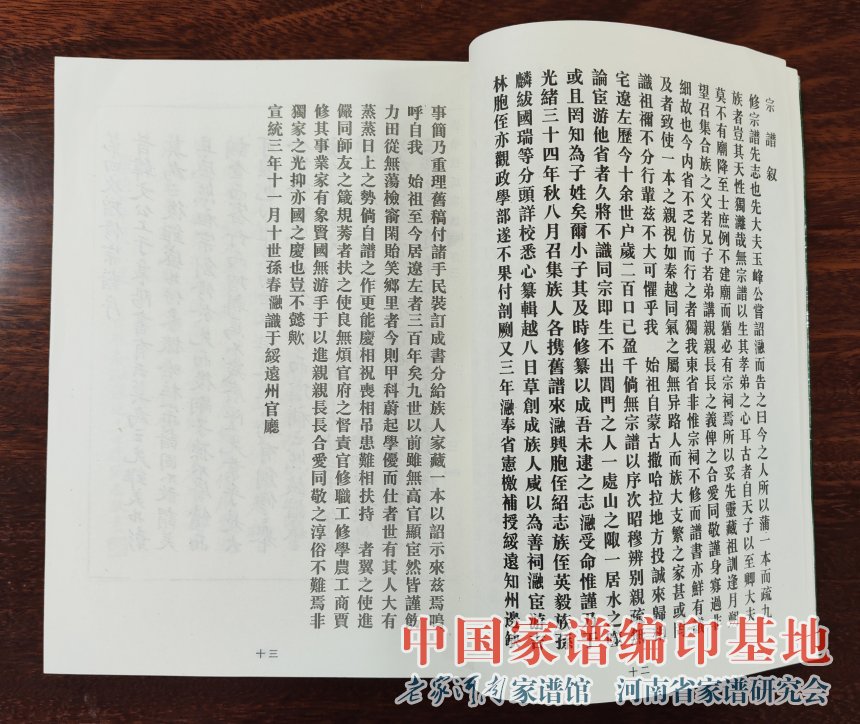 宗譜叙
修宗譜先志也先大夫玉峰公嘗詔瀜而告之曰今之人所以蒲一本而疏九
族者豈其天性獨灕哉無宗譜以生其孝弟之心耳古者自天子以至卿大夫
莫不有廟降至士庶例不建廟而猶必有宗祠焉所以妥先靈藏祖訓逢月朔
望召集合族之父若兄子若弟講親親長長之義俾之合愛同敬謹身寡過
細故也今内省不乏仿而行之者獨我東省非惟宗祠不修而譜書亦鮮有
及者致使一本之親視如秦越同氣之屬無异路人而族大支繁之家甚或
識祖禰不分行輩茲不大可懼乎我 始祖自蒙古撒哈拉地方投誠來歸
宅遼左歷今十余世户歲二百口已盈千倘無宗譜以序次昭穆辨别親疏
論宦游他省者久將不識同宗即生不出閭門之人一處山之陬一居水之
或且罔知為子姓矣爾小子其及時修纂以成吾未逮之志瀜受命惟謹
光緒三十四年秋八月召集族人各携舊譜來瀜興胞侄紹志族侄英毅族孫
麟紱國瑞等分頭詳校悉心纂輯越八日草創成族人咸以為善祠瀜宦游
林胞侄亦觀政學部遂不果付剖劂又三年瀜奉省憲檄補授綏遠知州邊
事簡乃重理舊稿付諸手民裝訂成書分給族人家藏一本以詔示來茲焉嗚
呼自我 始祖至今居遼左者三百年矣九世以前雖無高官顯宦然皆謹飭
力田從無蕩檢窬閑貽笑鄉里者今則甲科蔚起學優而仕者世有其人大有
蒸蒸日上之勢倘自譜之作更能慶相祝喪相吊患難相扶持 者翼之使進
儼同師友之箴規莠者扶之使良無煩官府之督責官修職工修學農工商賈
修其事業家有象賢國無游手于以進親親長長合愛同敬之淳俗不難焉非
獨家之光抑亦國之慶也豈不懿歟
宣統三年十一月十世孫春瀜識于綏遠州官廳
十二
十三
中国家谱编印基地
老家河南家谱馆 河南省家谱研究会